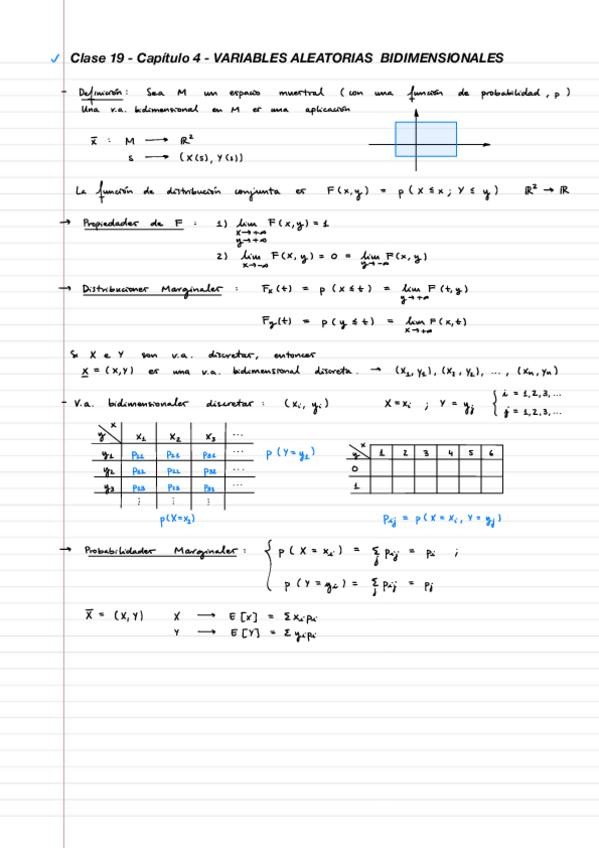 ✓ Clase 19 - Capítulo 4 - VARIABLES ALEATORIAS BIDIMENSIONALES
- Definición: Sea M un espacio muestral (con una función de probabilidad, p)
Una v.a. bidimensional en M es una aplicación
X̄ : M → ℝ²
s → (X(s), Y(s))
La función de distribución conjunta es F(x,y) = p(X ≤ x; Y ≤ y) ℝ² → ℝ
→ Propiedades de F : 1) lim F(x,y) = 1
x→+∞
y→+∞
2) lim F(x,y) = 0 = lim F(x,y)
x→-∞ y→-∞
→ Distribuciones Marginales : Fx(t) = p(x ≤ t) = lim F(t,y)
y→+∞
Fy(t) = p(y ≤ t) = lim F(x,t)
x→+∞
Si X e Y son v.a. discretas, entonces
X = (X,Y) es una v.a. bidimensional discreta. → (x1, y1), (x2, y2), ..., (xn, yn)
- V.a. bidimensionales discretas : (xi, yj) X = xi ; Y = yj { i = 1,2,3,...
j = 1,2,3,...
y x x1 x2 x3 ...
y1 p11 p21 p31 ... p(Y=y1)
y2 p12 p22 p32 ...
y3 p13 p23 p33 ...
⋮ ⋮ ⋮
p(X=x1)
y x 1 2 3 4 5 6
0
1
Pij = p(X = xi, Y = yj)
→ Probabilidades Marginales : { p(X = xi) = Σ pij = pi ;
j
p(Y = yj) = Σ pij = pj
X̄ = (X,Y) X → E[X] = Σ xi pi
Y → E[Y] = Σ yi pi